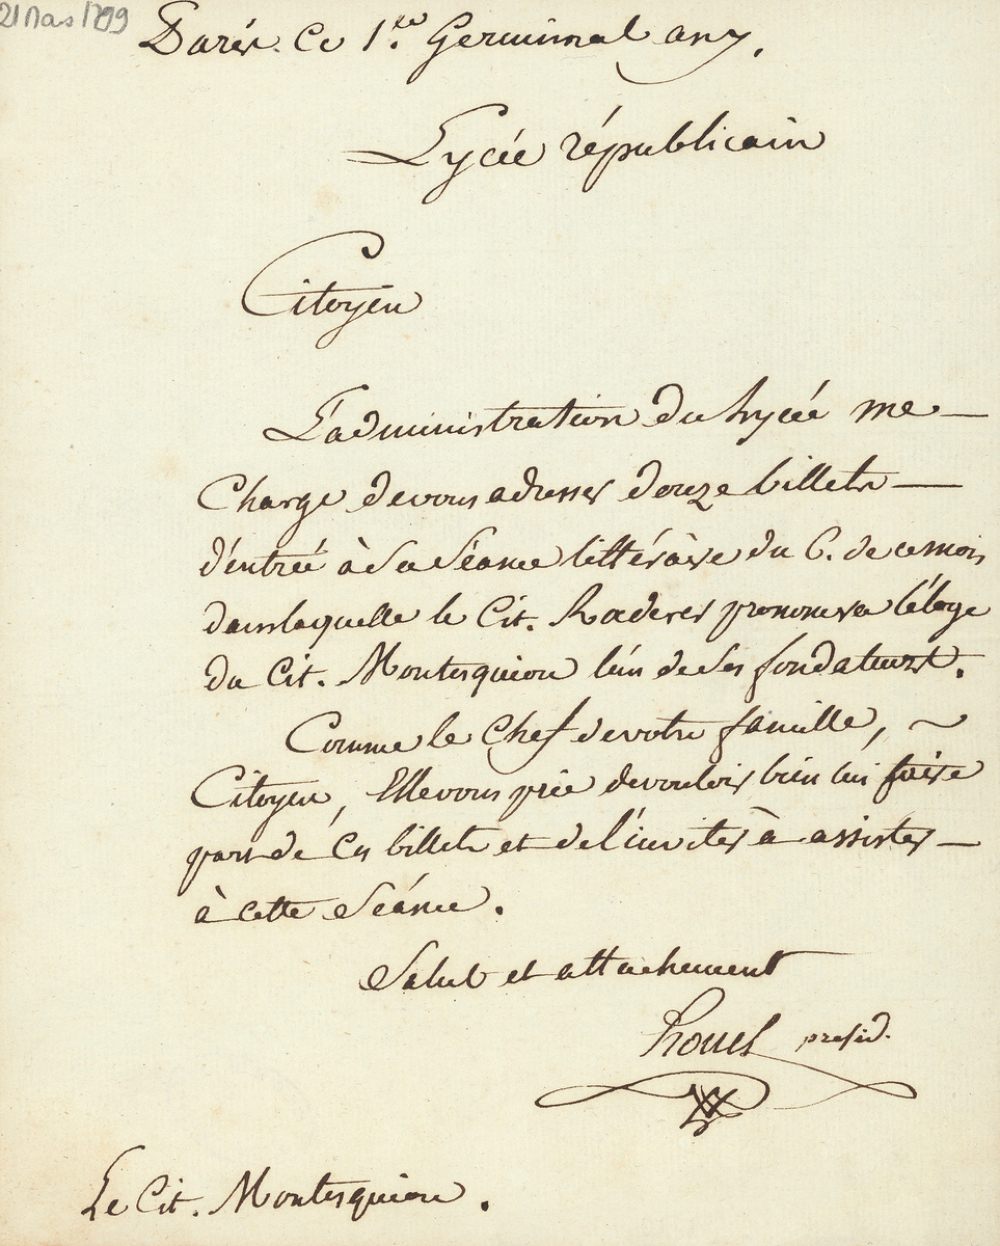 21 Mars 1799
Paris Ce 1.er Germinal an 7.
Lycée républicain
Citoyen
L'administration du Lycée me
Charge de vous adresser douze billets
d'entrée à Sa Séance littéraire du 6. de ce mois
dans laquelle le Cit. Rœderer prononcera l'éloge
du Cit. Montesquiou l'un de Ses fondateurs.
Comme le Chef de votre famille,
Citoyen, Elle vous prie de vouloir bien lui faire
part de Ces billets et de l'inviter à assister
à cette Séance.
Salut et attachement
présid.
Le Cit. Montesquiou.